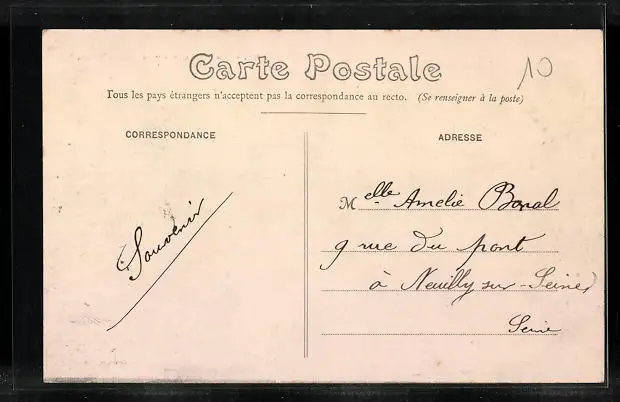 Carte Postale
10
Tous les pays étrangers n'acceptent pas la correspondance au recto. (Se renseigner à la poste)
CORRESPONDANCE
ADRESSE
Souvenir
Melle Amelie Bonal
9 rue du pont
à Neuilly sur-Seine
Seine